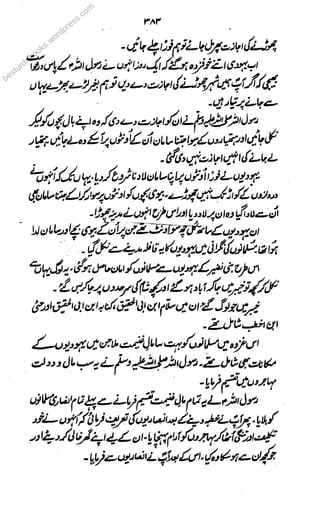 ۳۸۳
چھوڑنے کی اجازت پھر مل جائے تو ہم فوراً چلے جائیں۔
اب یہودی اتنے خوفزدہ ہو گئے کہ ایک روز انہوں نے رسول اللہ ﷺ کے پاس درخواست
بھیجی کہ اگر آپ ہمیں شہر چھوڑنے کی اجازت دے دیں تو ہم بغیر لڑے بھڑے یہاں
سے جانے پر تیار ہیں۔
رسول اللہ صلی اللہ علیہ وسلم نے ان کو اجازت دے دی کہ وہ اپنے بال بچوں کو لیکر
نکل جائیں اور ہتھیاروں کے سوا جتنا سامان اُن کے اونٹوں پر آسکے وہ لے جائیں۔ ہتھیار
لے جانے کی انہیں اجازت نہیں دی گئی۔
یہودیوں نے فوراً اونٹوں پر اپنا سامان لادنا شروع کر دیا۔ یہاں تک کہ انہوں نے
دروازوں کے کواڑ تک نہیں چھوڑے۔ بیوی بچوں کو اونٹوں پر سوار کرا کے جتنا سامان بھی
اُن سے لادا گیا وہ ان پر لاد دیا اور اس طرح انہوں نے مدینہ چھوڑا۔
ان یہودیوں کے ساتھ کل چھ سو اونٹ تھے جن پر اُن کے بیوی بچے اور سامان لدا
ہوا تھا۔ مسلمانوں کی نگرانی میں یہودیوں کا یہ قافلہ مدینے سے نکل گیا۔
اس طرح بنی نضیر کے یہودیوں سے مسلمانوں کو امان حاصل ہو گئی۔ یہ لوگ یہاں سے
نکل کر کچھ تو خیبر میں جا کر آباد ہو گئے اور کچھ شام کی سرحدوں پر جا کر بس گئے۔
خیبر میں جو لوگ گئے اُن میں سلام ابن ابی الحقیق، کنانہ ابن ابی الحقیق اور حیی
ابن اخطب شامل تھے۔
اس غزوہ میں مسلمانوں کو بہت سا مال غنیمت ملا جن میں یہودیوں کے
مکانات بھی شامل تھے۔ رسول اللہ صلی اللہ علیہ وسلم نے یہ سب مال و دولت
مہاجروں میں تقسیم فرمایا۔
رسول اللہ ﷺ نے یہ تمام مال غنیمت تقسیم فرمانے سے پہلے تمام انصاری مسلمانوں
کو بلایا۔ پھر آپ نے خطبہ دینے کے بعد انصاریوں کی تعریف فرمائی کہ انہوں نے خود
تکلیف اور تنگی اٹھا کر مہاجروں کو آرام پہنچایا۔ ان کے لیے اپنے گھر خالی کر دیئے اور
جو کچھ ان سے ہو سکا وہ کیا۔ اس کے بعد آپ نے انصاریوں سے فرمایا۔
besturdubooks.wordpress.com